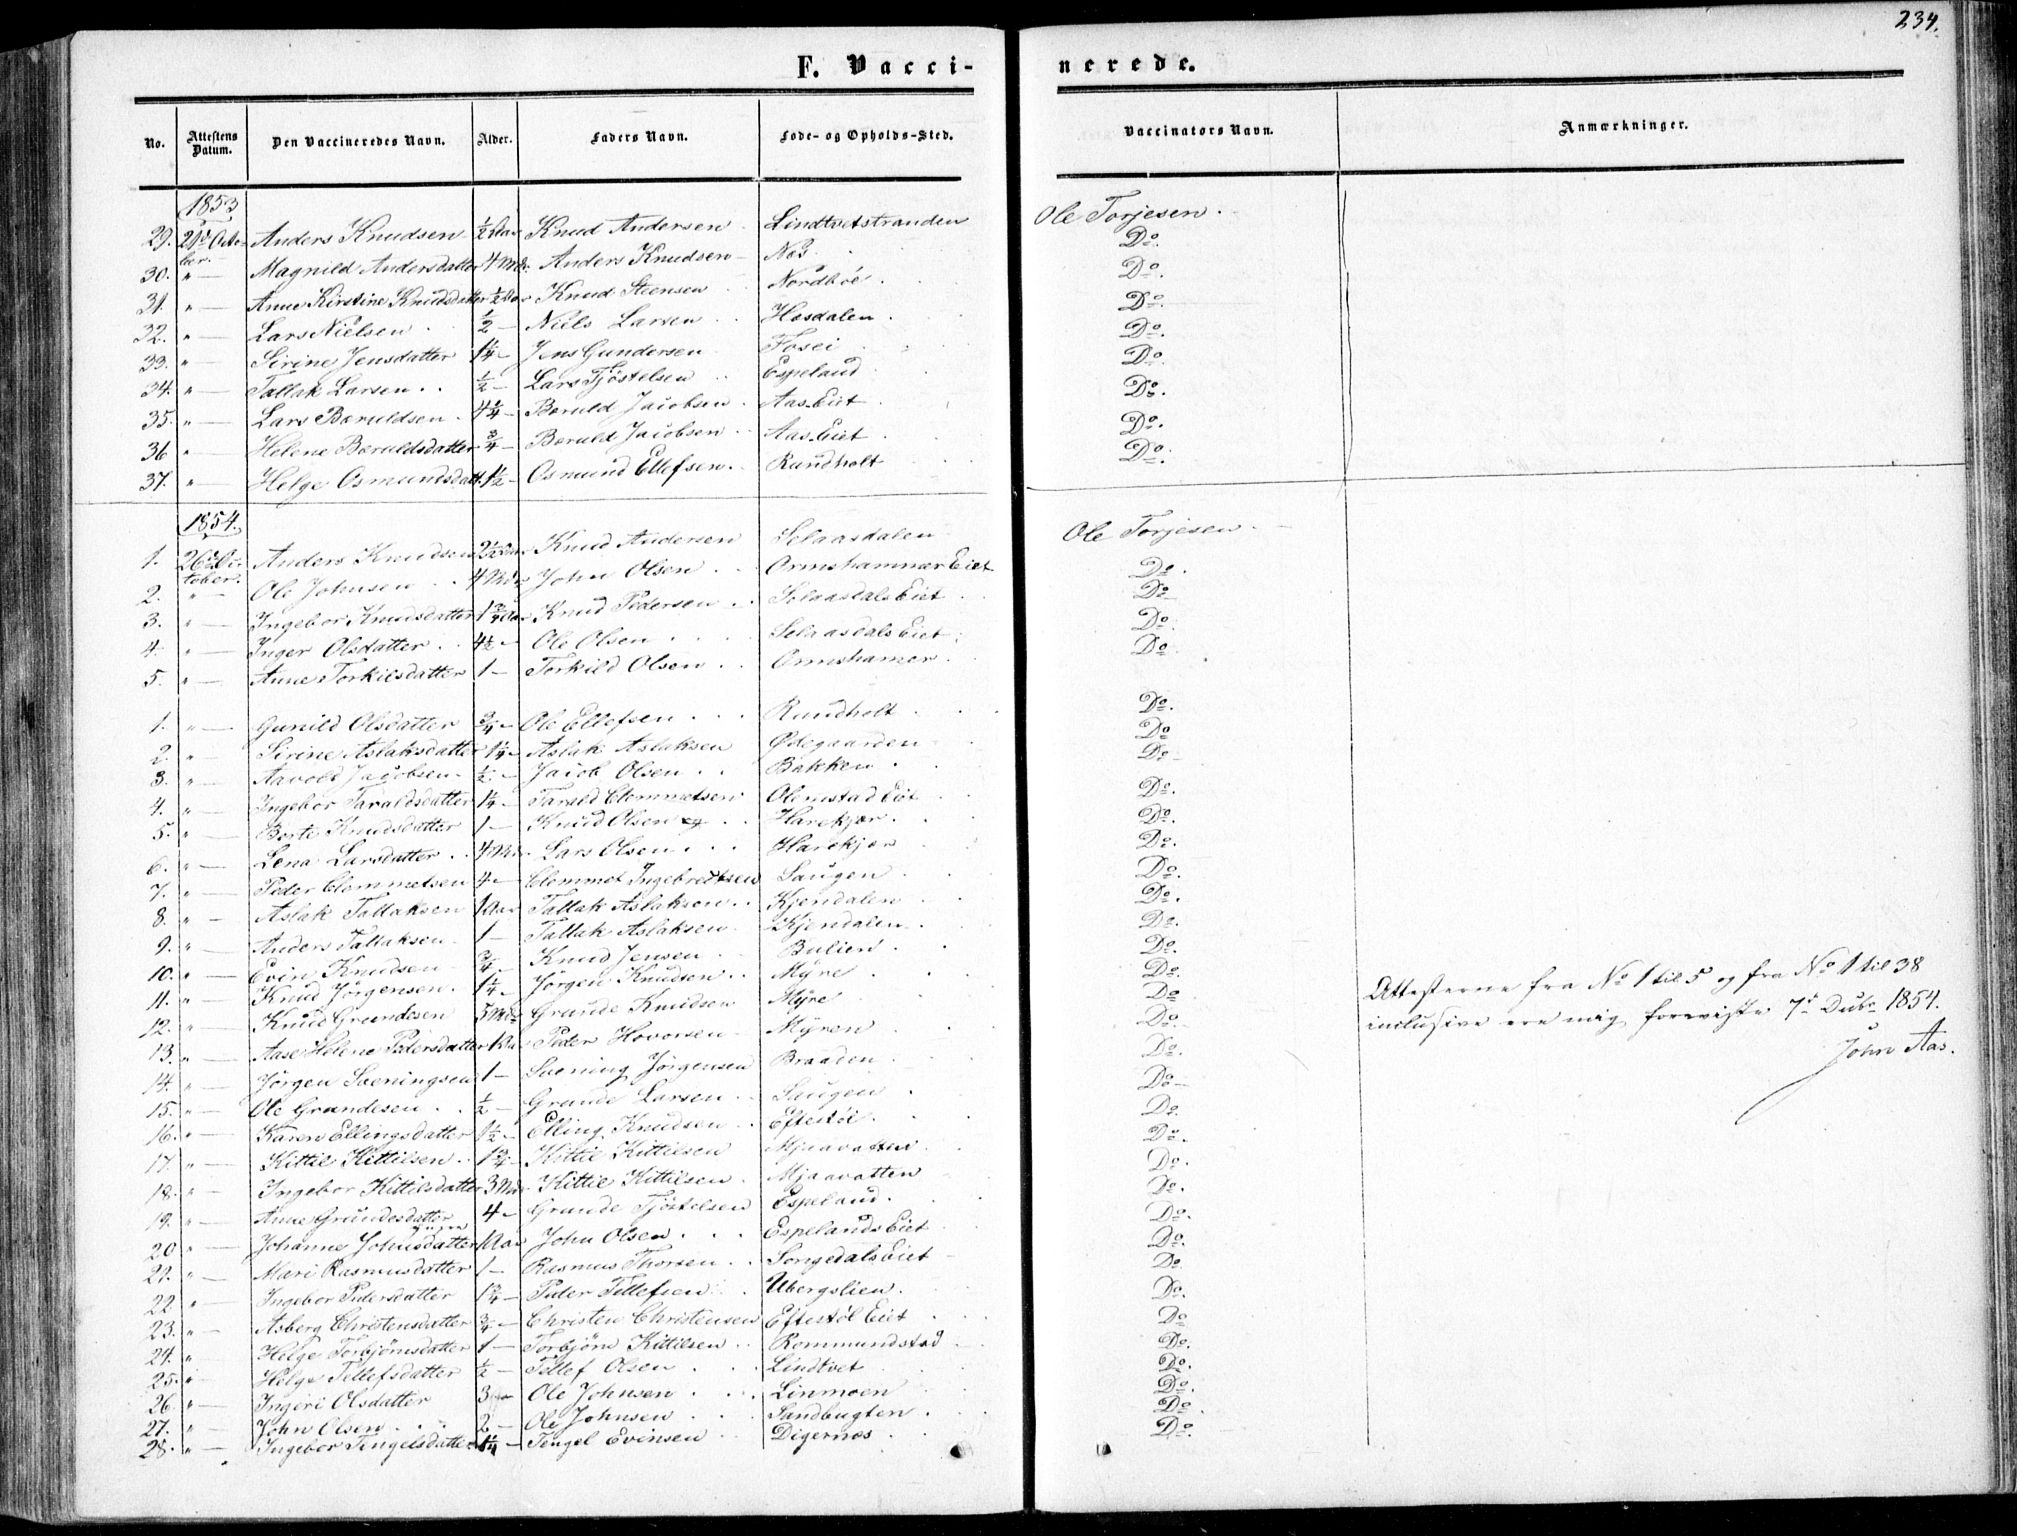 234.
F. Vacci-
nerede.
No. Attestens Datum. Den Vaccineredes Navn. Alder. Faders Navn. Føde- og Opholds-Sted. Vaccinators Navn. Anmærkninger.
1853
29. 29d Octo- ber. Anders Knudsen ½ Aar Knud Andersen Lindtvetstranden Ole Torjesen.
30. " — Magnild Andersdatter 4 Mdr. Anders Knudsen Næs Do.
31. " — Anne Kirstine Knudsdatter ½ Aar Knud Steensen Nordbøe. Do.
32. " — Lars Nielsen ½ — Niels Larsen Hasdalen. Do.
33. " — Sirine Jensdatter 1¼ — Jens Gundersen Fosei Do.
34. " — Tallak Larsen ½ — Lars Tjöstelsen Espeland Do.
35. " — Lars Beruldsen 4¼ — Beruld Jacobsen Aas Eiet Do.
36 " — Helene Beruldsdatter ¾ — Beruld Jacobsen Aas Eiet Do.
37. " — Helge Osmundsdatt. 1½ — Osmund Ellefsen. Rundholt Do.
1854.
1. 26d Oc- tober. Anders Knudsen 2½ Aar Knud Andersen Selaasdalen Ole Torjesen
2. " — Ole Johnsen 4 Mdr John Olsen Ormshammar Eiet Do.
3. " — Ingebor Knudsdatter 1¾ Aar Knud Pedersen Selaasdals Eiet Do
4. " — Inger Olsdatter 4½ — Ole Olsen Selaasdals Eiet Do.
5. " — Anne Torkilsdatter 1 — Torkild Olsen Ormshamer Do.
1. " — Gunild Olsdatter ¾ — Ole Ellefsen Rundholt Do.
2. " — Sirine Aslaksdatter 1¼ — Aslak Aslaksen Ødegaarden Do
3. " — Jacobsen ½ — Jacob Olsen Bakken Do
4. " — Ingebor Taraldsdatter 1¼ — Tarald Clemmetsen Olimstad Eiet Do.
5. " — Berte Knudsdatter 1 — Knud Olsen Harekjær. Do.
6. " — Lena Larsdatter 4 Mdr. Lars Olsen Harekjær Do.
7. " — Peder Clemmetsen 4 — Clemmet Ingebretsen Saugen Do.
8. " — Aslak Tallaksen 1 Aar Tallak Aslaksen Kjendalen Do.
9. " — Anders Tallaksen 1 — Tallak Aslaksen Kjendalen Do.
10. " — Evin Knudsen ¾ — Knud Jensen Bulien Do.
11. " — Knud Jørgensen 1¼ — Jørgen Knudsen Myre Do.
12. " — Knud Grundesen 5 Mdr Grunde Knudsen Myre Do.
13. " — Aase Helene Pedersdatter 1 Aar Peder Hovorsen Myren Do.
14. " — Jørgen Sveningsen 1 — Svening Jørgensen Braaden Do.
15. " — Ole Grundesen ½ — Grunde Larsen Saugen Do —
16. " — Karen Ellingsdatter 1½ — Elling Knudsen Eftestöl Do.
17. " — Kittil Kittilsen 1¾ — Kittil Kittilsen Mjaavatten Do.
18. " — Ingebor Kittilsdatter 3 Mdr Kittil Kittilsen Mjaavatten Do.
19. " — Anne Grundesdatter 4 — Grunde Tjöstelsen Espeland. Do.
20 " — Johanne Johnsdatter 1 Aar John Olsen Espelands Eiet Do.
21. " — Mari Rasmusdatter 1 — Rasmus Thorsen Songedals Eiet Do.
22. " — Ingebor Pedersdatter 1¾ — Peder Tellefsen Ubergslien. Do.
23. " — Asberg Christensdatter ¾ — Christen Christensen Eftestöl Eiet Do
24. " Helge Torbjørnsdatter 1 — Torbjörn Kittilsen Rommundstad Do.
25. " Helge Tellefsdatter ½ — Tellef Olsen Lindtvet Do.
26. " — Ingeri Olsdatter 3 — Ole Johnsen Linmoen Do.
27. " — John Olsen 2 — Ole Johnsen Sandbugten Do.
28. " — Ingebor Tengelsdatter 1¼ — Tengel Evinsen Digernæs Do.
Attesterne fra No 1 til 5 og fra No 1 til 38
inclusive ere mig foreviste 7d Decbr 1854.
John Aas.